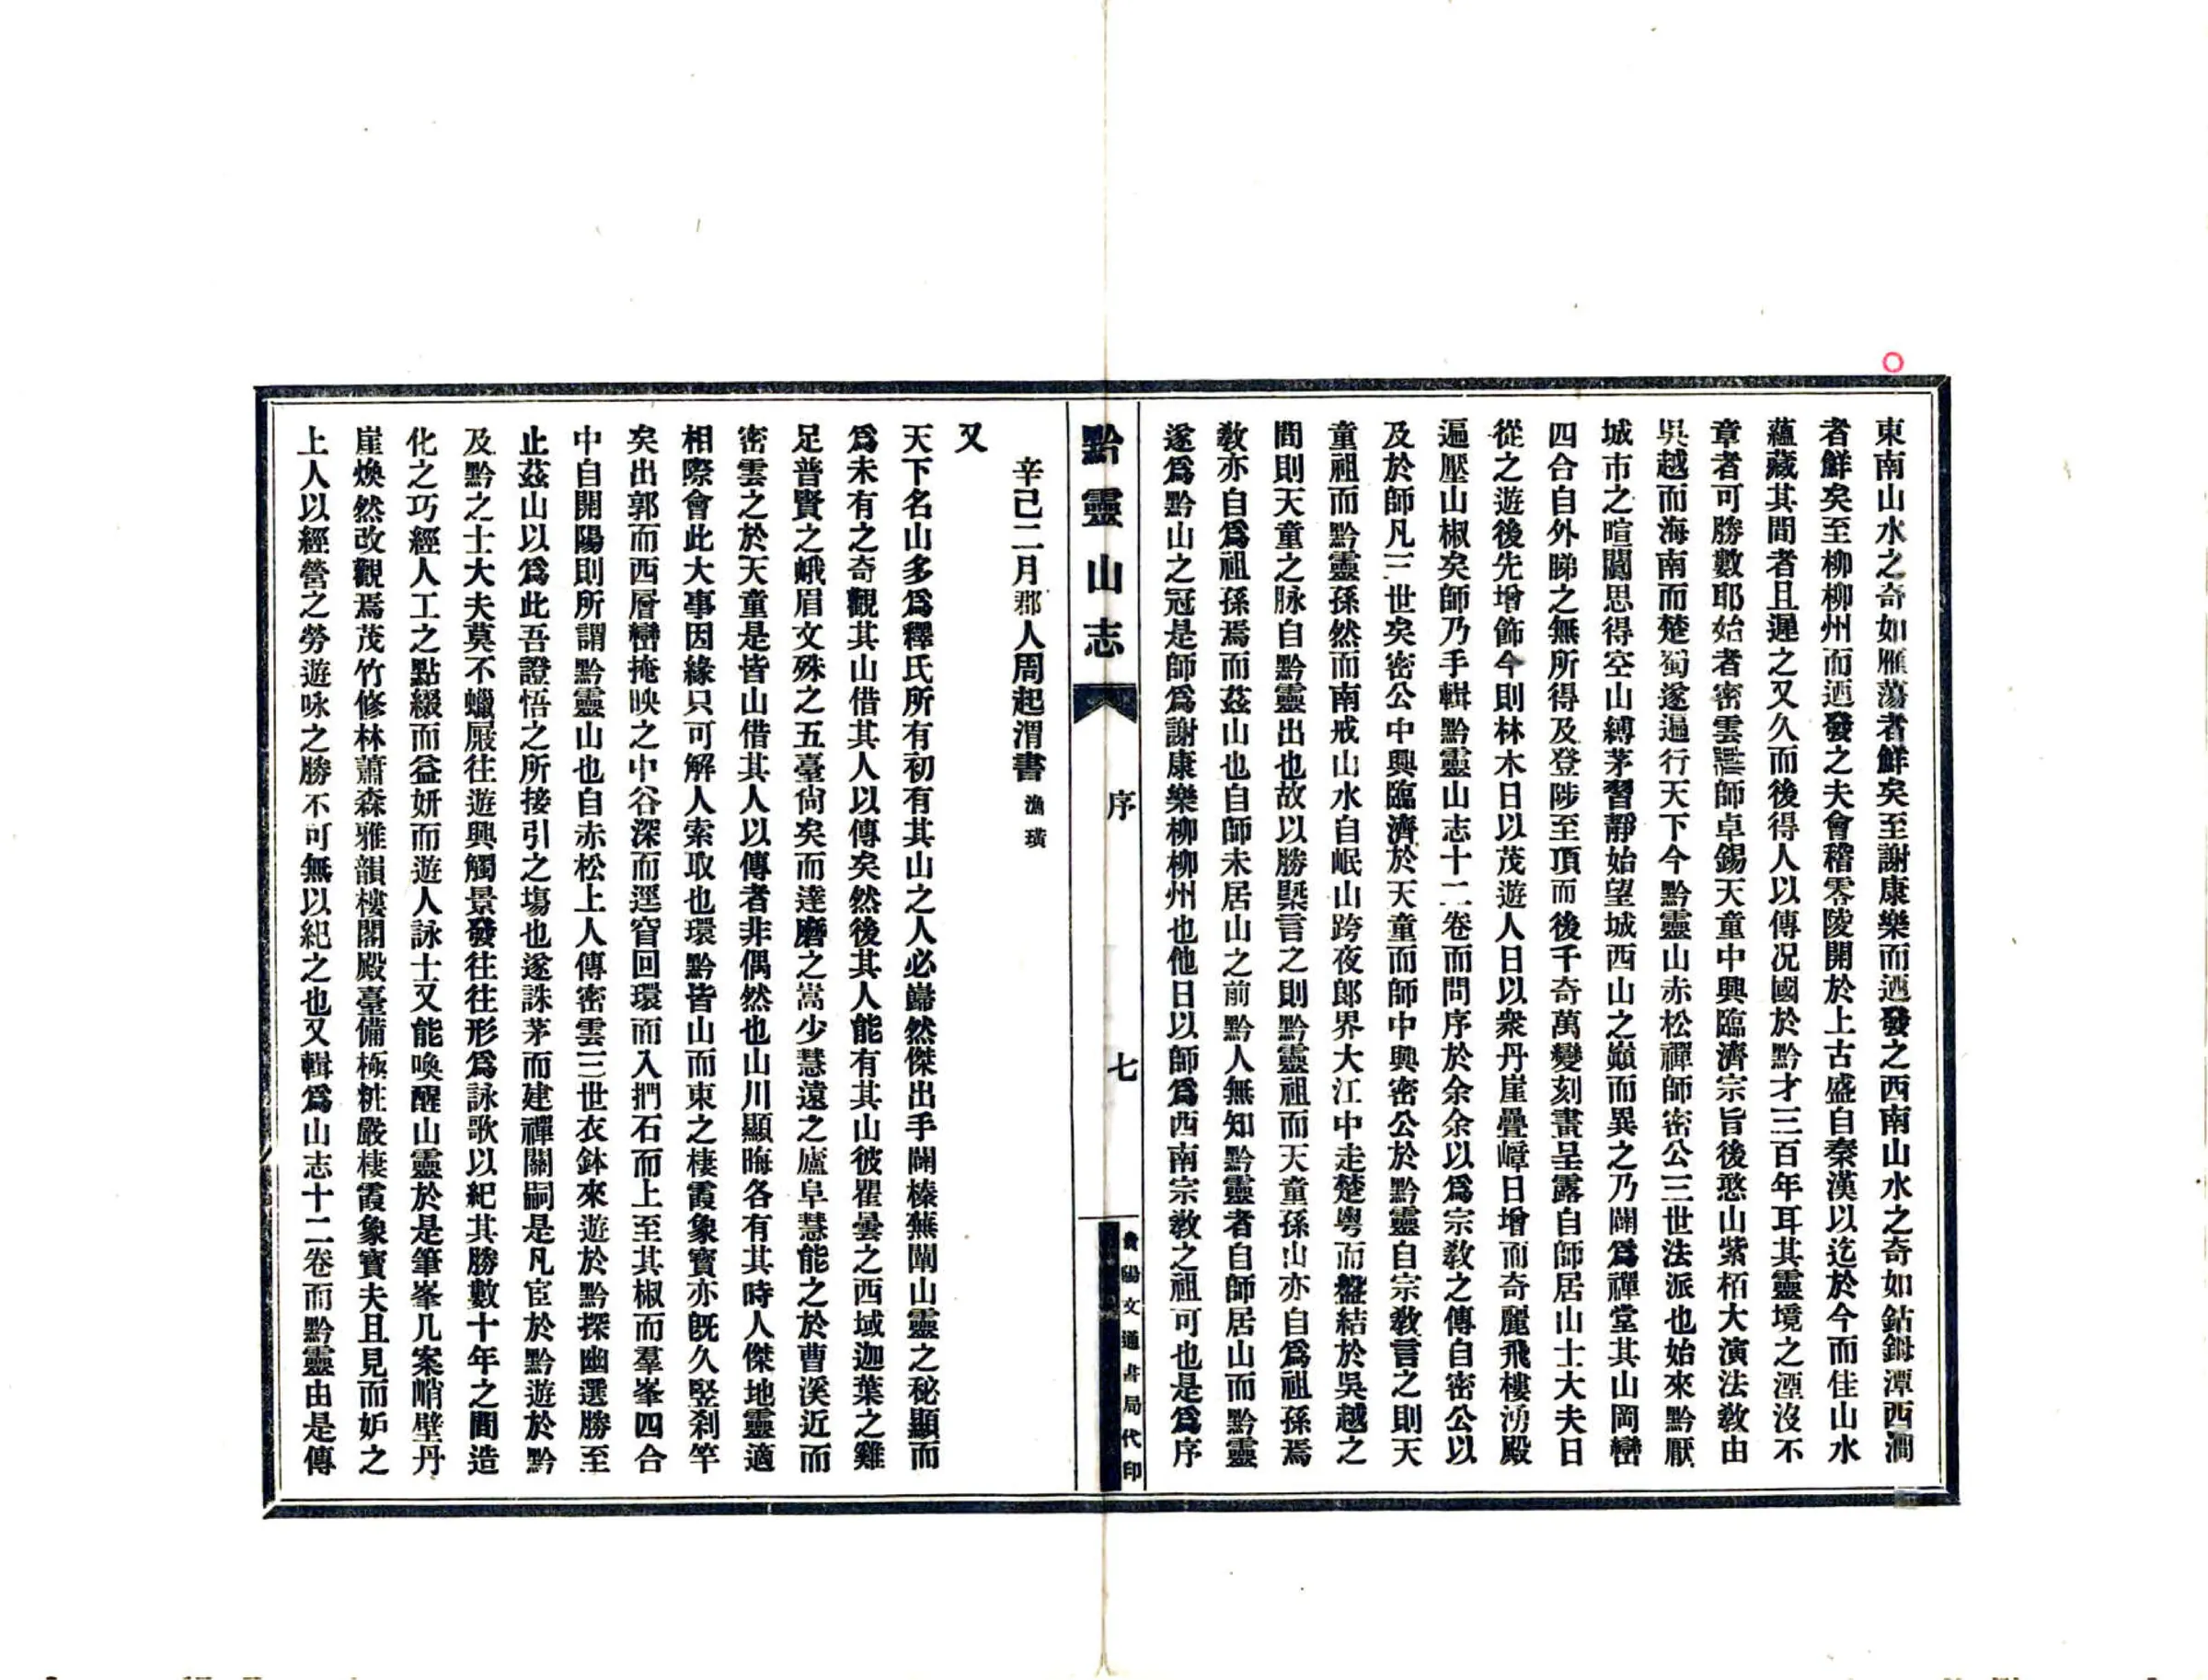 東南山水之奇如雁蕩者鮮矣至謝康樂而廼發之西南山水之奇如鈷鉧潭西澗
者鮮矣至柳柳州而廼發之夫會稽零陵開於上古盛自秦漢以迄於今而佳山水
蘊藏其間者且遲之又久而後得人以傳况國於黔才三百年耳其靈境之湮沒不
章者可勝數耶始者密雲師卓錫天童中興臨濟宗旨後憨山紫栢大演法敎由
吳越而海南而楚蜀遂遍行天下今黔靈山赤松禪師密公三世法派也始來黔厭
城市之喧闐思得空山縛茅習靜始望城西山之巔而異之乃闢爲禪堂其山岡巒
四合自外睇之無所得及登陟至頂而後千奇萬變刻畫呈露自師居山士大夫日
從之遊後先增飾今則林木日以茂遊人日以衆丹崖疊嶂日增而奇麗飛樓湧殿
遍壓山椒矣師乃手輯黔靈山志十二卷而問序於余余以爲宗敎之傳自密公以
及於師凡三世矣密公中興臨濟於天童而師中興密公於黔靈自宗敎言之則天
童祖而黔靈孫然而南戒山水自岷山跨夜郎界大江中走楚粤而盤結於吳越之
間則天童之脉自黔靈出也故以勝槩言之則黔靈祖而天童孫山亦自爲祖孫焉
敎亦自爲祖孫焉而茲山也自師未居山之前黔人無知黔靈者自師居山而黔靈
遂爲黔山之冠是師爲謝康樂柳柳州也他日以師爲西南宗敎之祖可也是爲序
黔靈山志
序
七
貴陽文通書局代印
辛巳二月郡人周起渭書漁璜
又
天下名山多爲釋氏所有初有其山之人必巋然傑出手闢榛蕪闡山靈之秘顯而
爲未有之奇觀其山借其人以傳矣然後其人能有其山彼瞿曇之西域迦葉之雞
足普賢之峨眉文殊之五臺尙矣而達磨之嵩少慧遠之廬阜慧能之於曹溪近而
密雲之於天童是皆山借其人以傳者非偶然也山川顯晦各有其時人傑地靈適
相際會此大事因緣只可解人索取也環黔皆山而東之棲霞象寶亦旣久竪刹竿
矣出郭而西層巒掩映之中谷深而逕窅回環而入捫石而上至其椒而羣峯四合
中自開陽則所謂黔靈山也自赤松上人傳密雲三世衣鉢來遊於黔探幽選勝至
止茲山以爲此吾證悟之所接引之塲也遂誅茅而建禪關嗣是凡宦於黔遊於黔
及黔之士大夫莫不蠟屐往遊興觸景發往往形爲詠歌以紀其勝數十年之間造
化之巧經人工之點綴而益妍而遊人詠士又能喚醒山靈於是筆峯几案峭壁丹
崖煥然改觀焉茂竹修林蕭森雅韻樓閣殿臺備極粧嚴棲霞象寶夫且見而妬之
上人以經營之勞遊咏之勝不可無以紀之也又輯爲山志十二卷而黔靈由是傳